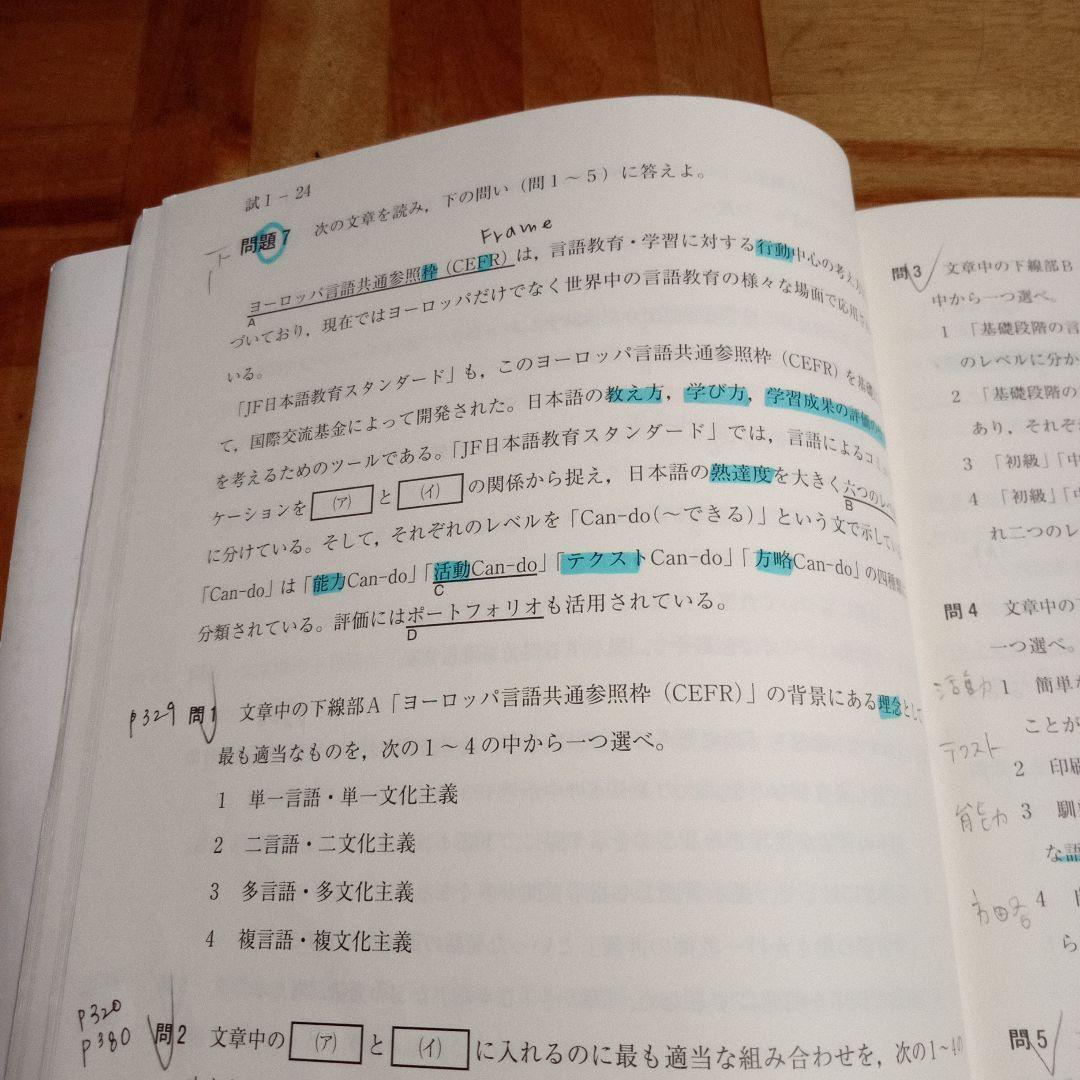 試Ⅰ－24
問題7 次の文章を読み，下の問い（問1～5）に答えよ。
Frame
ヨーロッパ言語共通参照枠（CEFR）は，言語教育・学習に対する行動中心の考え方
A
づいており，現在ではヨーロッパだけでなく世界中の言語教育の様々な場面で応用
いる。
「JF日本語教育スタンダード」も，このヨーロッパ言語共通参照枠（CEFR）を基礎
て，国際交流基金によって開発された。日本語の教え方，学び方，学習成果の評価の
を考えるためのツールである。「JF日本語教育スタンダード」では，言語によるコミュ
ケーションを (ア) と (イ) の関係から捉え，日本語の熟達度を大きく六つのレベ
B
に分けている。そして，それぞれのレベルを「Can-do（～できる）」という文で示してい
「Can-do」は「能力Can-do」「活動Can-do」「テクストCan-do」「方略Can-do」の四種類
C
分類されている。評価にはポートフォリオも活用されている。
D
p329 問1 文章中の下線部A「ヨーロッパ言語共通参照枠（CEFR）」の背景にある理念とし
最も適当なものを，次の1～4の中から一つ選べ。
1 単一言語・単一文化主義
2 二言語・二文化主義
3 多言語・多文化主義
4 複言語・複文化主義
p320
p380
問2 文章中の (ア) と (イ) に入れるのに最も適当な組み合わせを，次の1～4の
問3 文章中の下線部B
中から一つ選べ。
1 「基礎段階の言
のレベルに分か
2 「基礎段階の
あり，それぞれ
3 「初級」「中
4 「初級」「中
れ二つのレ
問4 文章中の下
一つ選べ。
活動 1 簡単な
ことが
テクスト
2 印刷
能力 3 馴
な語
方略 4
ら
問5